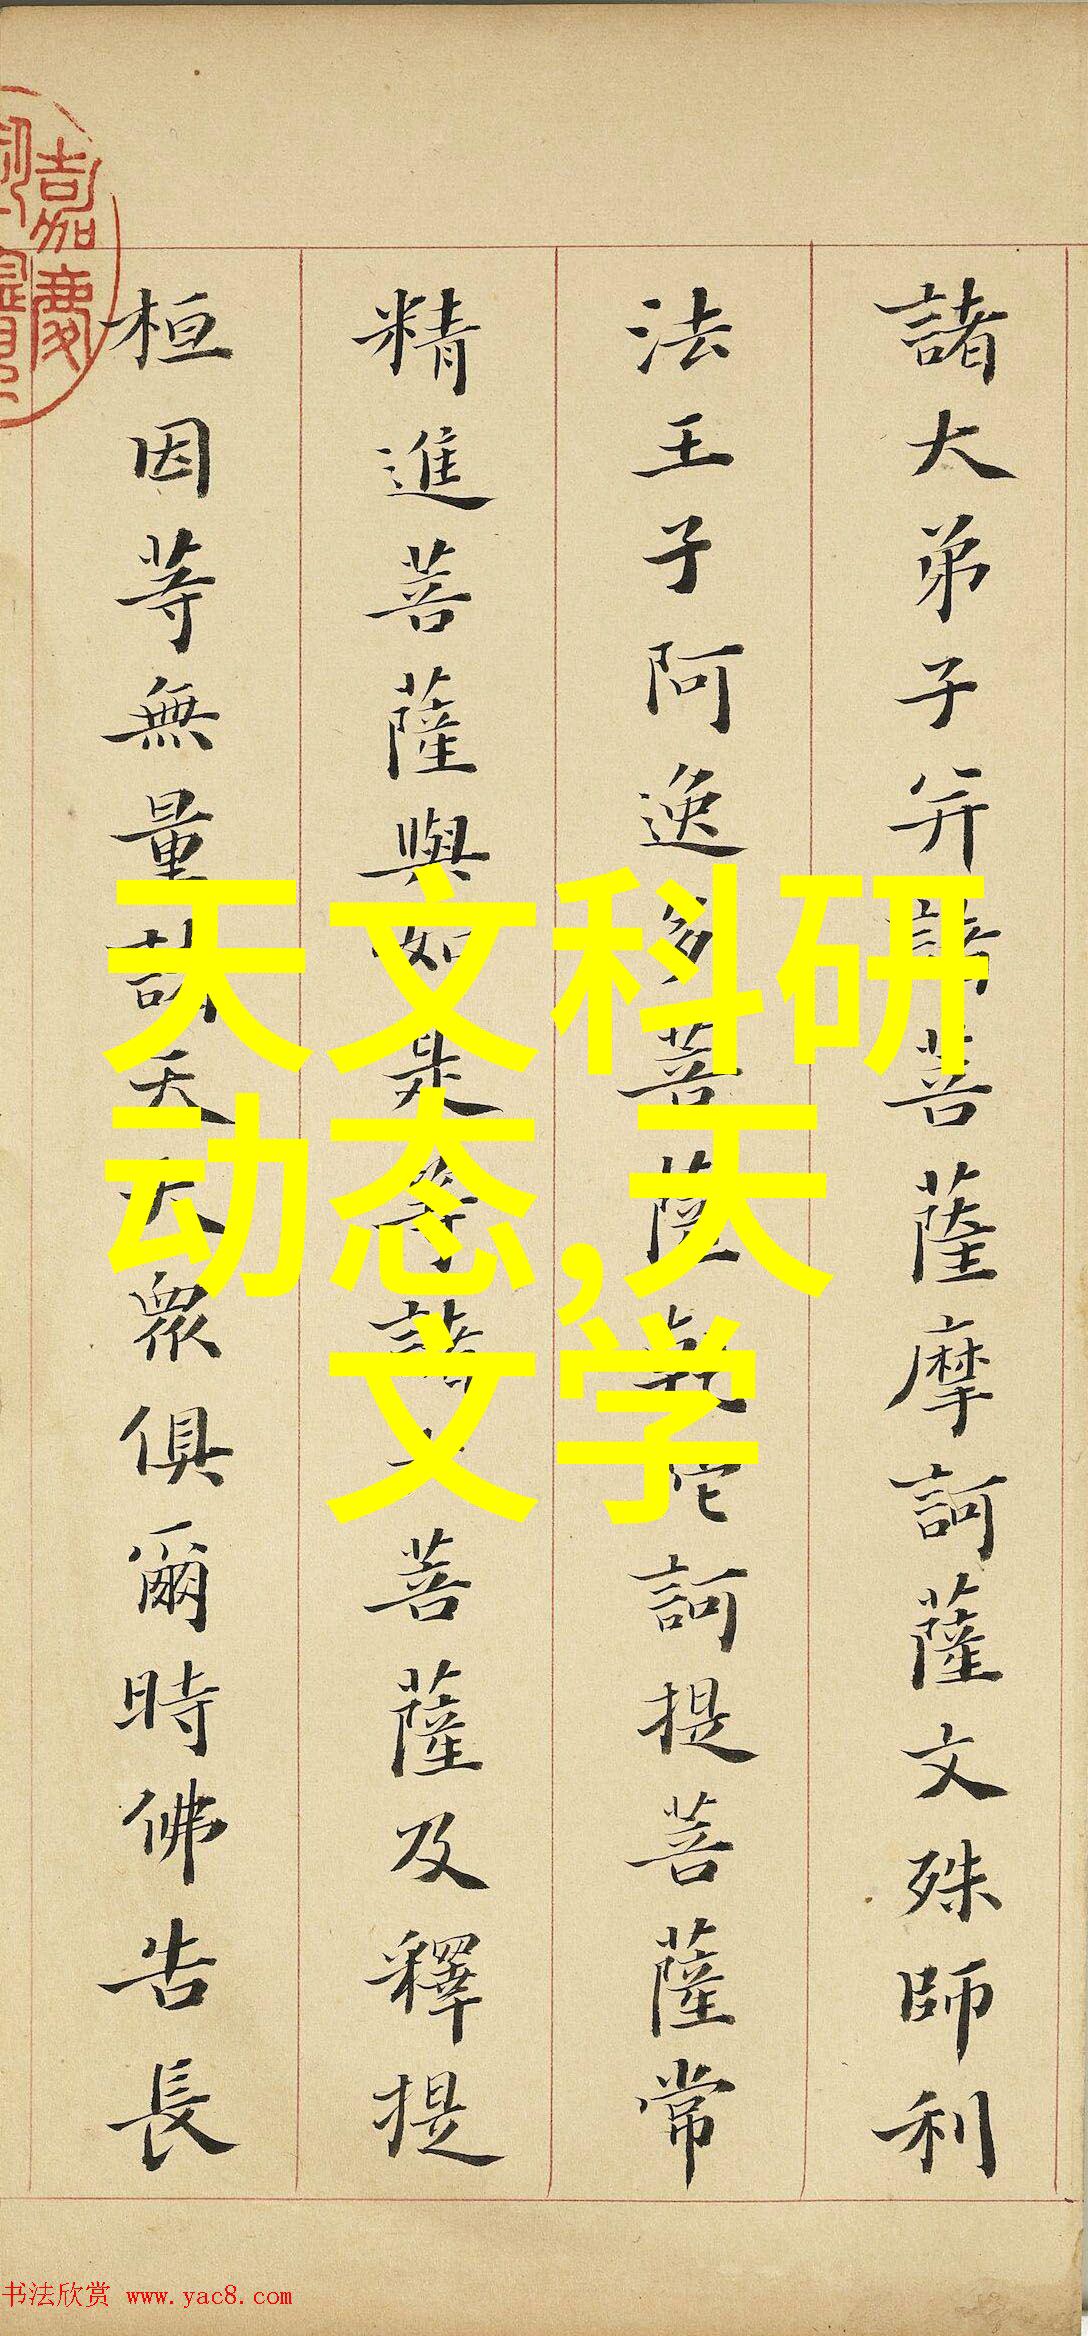 諸大弟子并諸菩薩摩訶薩文殊師利
法王子阿逸多菩薩乾陀訶提菩薩常
精進菩薩與如是等諸大菩薩及釋提
桓因等無量諸天大眾俱爾時佛告長
嘉慶
天文科研
动态,天
文学
书法欣赏 www.yac8.com